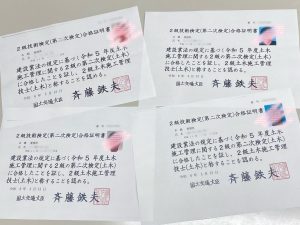 2級技術検定(第二次検定)合格証明書
建設業法の規定に基づく令和5年度土木
施工管理に関する2級の第二次検定(土木)
に合格したことを証し、2級土木施工管理
技士(土木)と称することを認める。
国土交通大臣 斉藤鉄夫
2級技術検定(第二次検定)合格証明書
建設業法の規定に基づく令和5年度土木
施工管理に関する2級の第二次検定(土木)
に合格したことを証し、2級土木施工管理
技士(土木)と称することを認める。
国土交通大臣 斉藤鉄夫
2級技術検定(第二次検定)合格証明書
建設業法の規定に基づく令和5年度土木
施工管理に関する2級の第二次検定(土木)
に合格したことを証し、2級土木施工管理
技士(土木)と称することを認める。
国土交通大臣 斉藤鉄夫
2級技術検定(第二次検定)合格証明書
建設業法の規定に基づく令和5年度土木
施工管理に関する2級の第二次検定(土木)
に合格したことを証し、2級土木施工管理
技士(土木)と称することを認める。
国土交通大臣 斉藤鉄夫